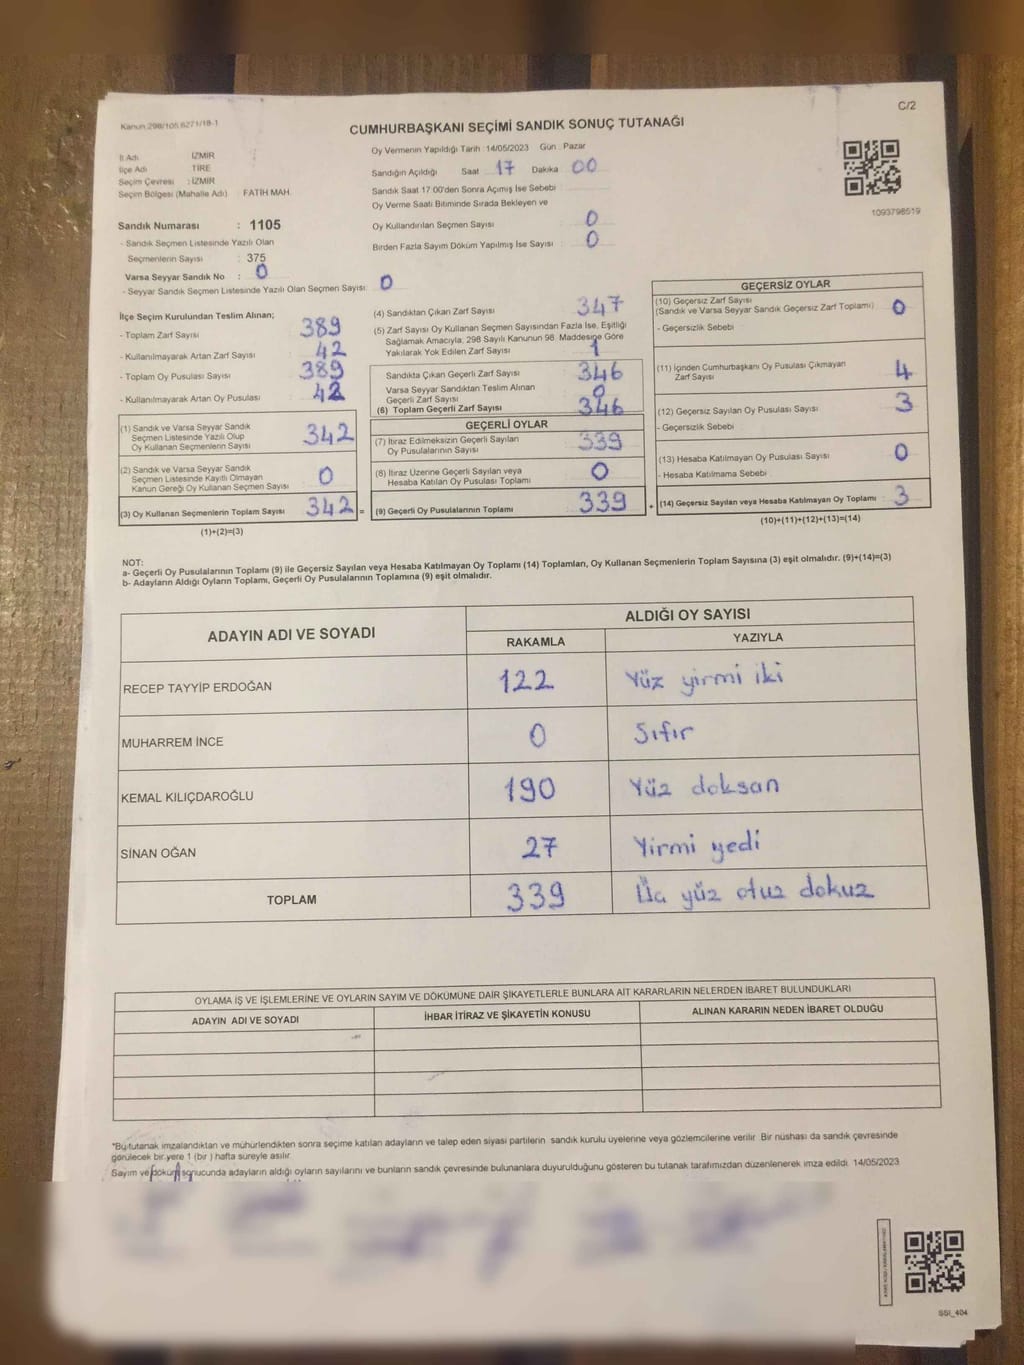 C/2
Kanun 298/105,6271/18-1
CUMHURBAŞKANI SEÇİMİ SANDIK SONUÇ TUTANAĞI
İl Adı İZMİR
İlçe Adı TİRE
Seçim Çevresi : İZMİR
Seçim Bölgesi (Mahalle Adı) FATİH MAH.
Oy Vermenin Yapıldığı Tarih :14/05/2023 Gün : Pazar
Sandığın Açıldığı Saat 17 Dakika 00
Sandık Saat 17:00'den Sonra Açımış İse Sebebi
Oy Verme Saati Bitiminde Sırada Bekleyen ve
Oy Kullandırılan Seçmen Sayısı 0
Birden Fazla Sayım Döküm Yapılmış İse Sayısı : 0
1093798519
Sandık Numarası : 1105
- Sandık Seçmen Listesinde Yazılı Olan
Seçmenlerin Sayısı : 375
Varsa Seyyar Sandık No : 0
- Seyyar Sandık Seçmen Listesinde Yazılı Olan Seçmen Sayısı: 0
İlçe Seçim Kurulundan Teslim Alınan;
- Toplam Zarf Sayısı 389
- Kullanılmayarak Artan Zarf Sayısı 42
- Toplam Oy Pusulası Sayısı 389
- Kullanılmayarak Artan Oy Pusulası 42
(1) Sandık ve Varsa Seyyar Sandık
Seçmen Listesinde Yazılı Olup
Oy Kullanan Seçmenlerin Sayısı 342
(2) Sandık ve Varsa Seyyar Sandık
Seçmen Listesinde Kayıtlı Olmayan
Kanun Gereği Oy Kullanan Seçmen Sayısı 0
(3) Oy Kullanan Seçmenlerin Toplam Sayısı 342 =
(1)+(2)=(3)
(4) Sandıktan Çıkan Zarf Sayısı 347
(5) Zarf Sayısı Oy Kullanan Seçmen Sayısından Fazla İse, Eşitliği
Sağlamak Amacıyla; 298 Sayılı Kanunun 98. Maddesine Göre
Yakılarak Yok Edilen Zarf Sayısı 1
Sandıkta Çıkan Geçerli Zarf Sayısı 346
Varsa Seyyar Sandıktan Teslim Alınan
Geçerli Zarf Sayısı 0
(6) Toplam Geçerli Zarf Sayısı 346
GEÇERLİ OYLAR
(7) İtiraz Edilmeksizin Geçerli Sayılan
Oy Pusulalarının Sayısı 339
(8) İtiraz Üzerine Geçerli Sayılan veya
Hesaba Katılan Oy Pusulası Toplamı 0
(9) Geçerli Oy Pusulalarının Toplamı 339 +
GEÇERSİZ OYLAR
(10) Geçersiz Zarf Sayısı
(Sandık ve Varsa Seyyar Sandık Geçersiz Zarf Toplamı) 0
- Geçersizlik Sebebi
(11) İçinden Cumhurbaşkanı Oy Pusulası Çıkmayan
Zarf Sayısı 4
(12) Geçersiz Sayılan Oy Pusulası Sayısı 3
- Geçersizlik Sebebi
(13) Hesaba Katılmayan Oy Pusulası Sayısı 0
- Hesaba Katılmama Sebebi
(14) Geçersiz Sayılan veya Hesaba Katılmayan Oy Toplamı : 3
(10)+(11)+(12)+(13)=(14)
NOT:
a- Geçerli Oy Pusulalarının Toplamı (9) ile Geçersiz Sayılan veya Hesaba Katılmayan Oy Toplamı (14) Toplamları, Oy Kullanan Seçmenlerin Toplam Sayısına (3) eşit olmalıdır. (9)+(14)=(3)
b- Adayların Aldığı Oyların Toplamı, Geçerli Oy Pusulalarının Toplamına (9) eşit olmalıdır.
ADAYIN ADI VE SOYADI
ALDIĞI OY SAYISI
RAKAMLA YAZIYLA
RECEP TAYYİP ERDOĞAN 122 Yüz yirmi iki
MUHARREM İNCE 0 Sıfır
KEMAL KILIÇDAROĞLU 190 Yüz doksan
SİNAN OĞAN 27 Yirmi yedi
TOPLAM 339 Üç yüz otuz dokuz
OYLAMA İŞ VE İŞLEMLERİNE VE OYLARIN SAYIM VE DÖKÜMÜNE DAİR ŞİKAYETLERLE BUNLARA AİT KARARLARIN NELERDEN İBARET BULUNDUKLARI
ADAYIN ADI VE SOYADI İHBAR İTİRAZ VE ŞİKAYETİN KONUSU ALINAN KARARIN NEDEN İBARET OLDUĞU
*Bu tutanak imzalandıktan ve mühürlendikten sonra seçime katılan adayların ve talep eden siyasi partilerin sandık kurulu üyelerine veya gözlemcilerine verilir. Bir nüshası da sandık çevresinde
görülecek bir yere 1 (bir ) hafta süreyle asılır.
Sayım ve döküm sonucunda adayların aldığı oyların sayılarını ve bunların sandık çevresinde bulunanlara duyurulduğunu gösteren bu tutanak tarafımızdan düzenlenerek imza edildi. 14/05/2023
SSİ_404